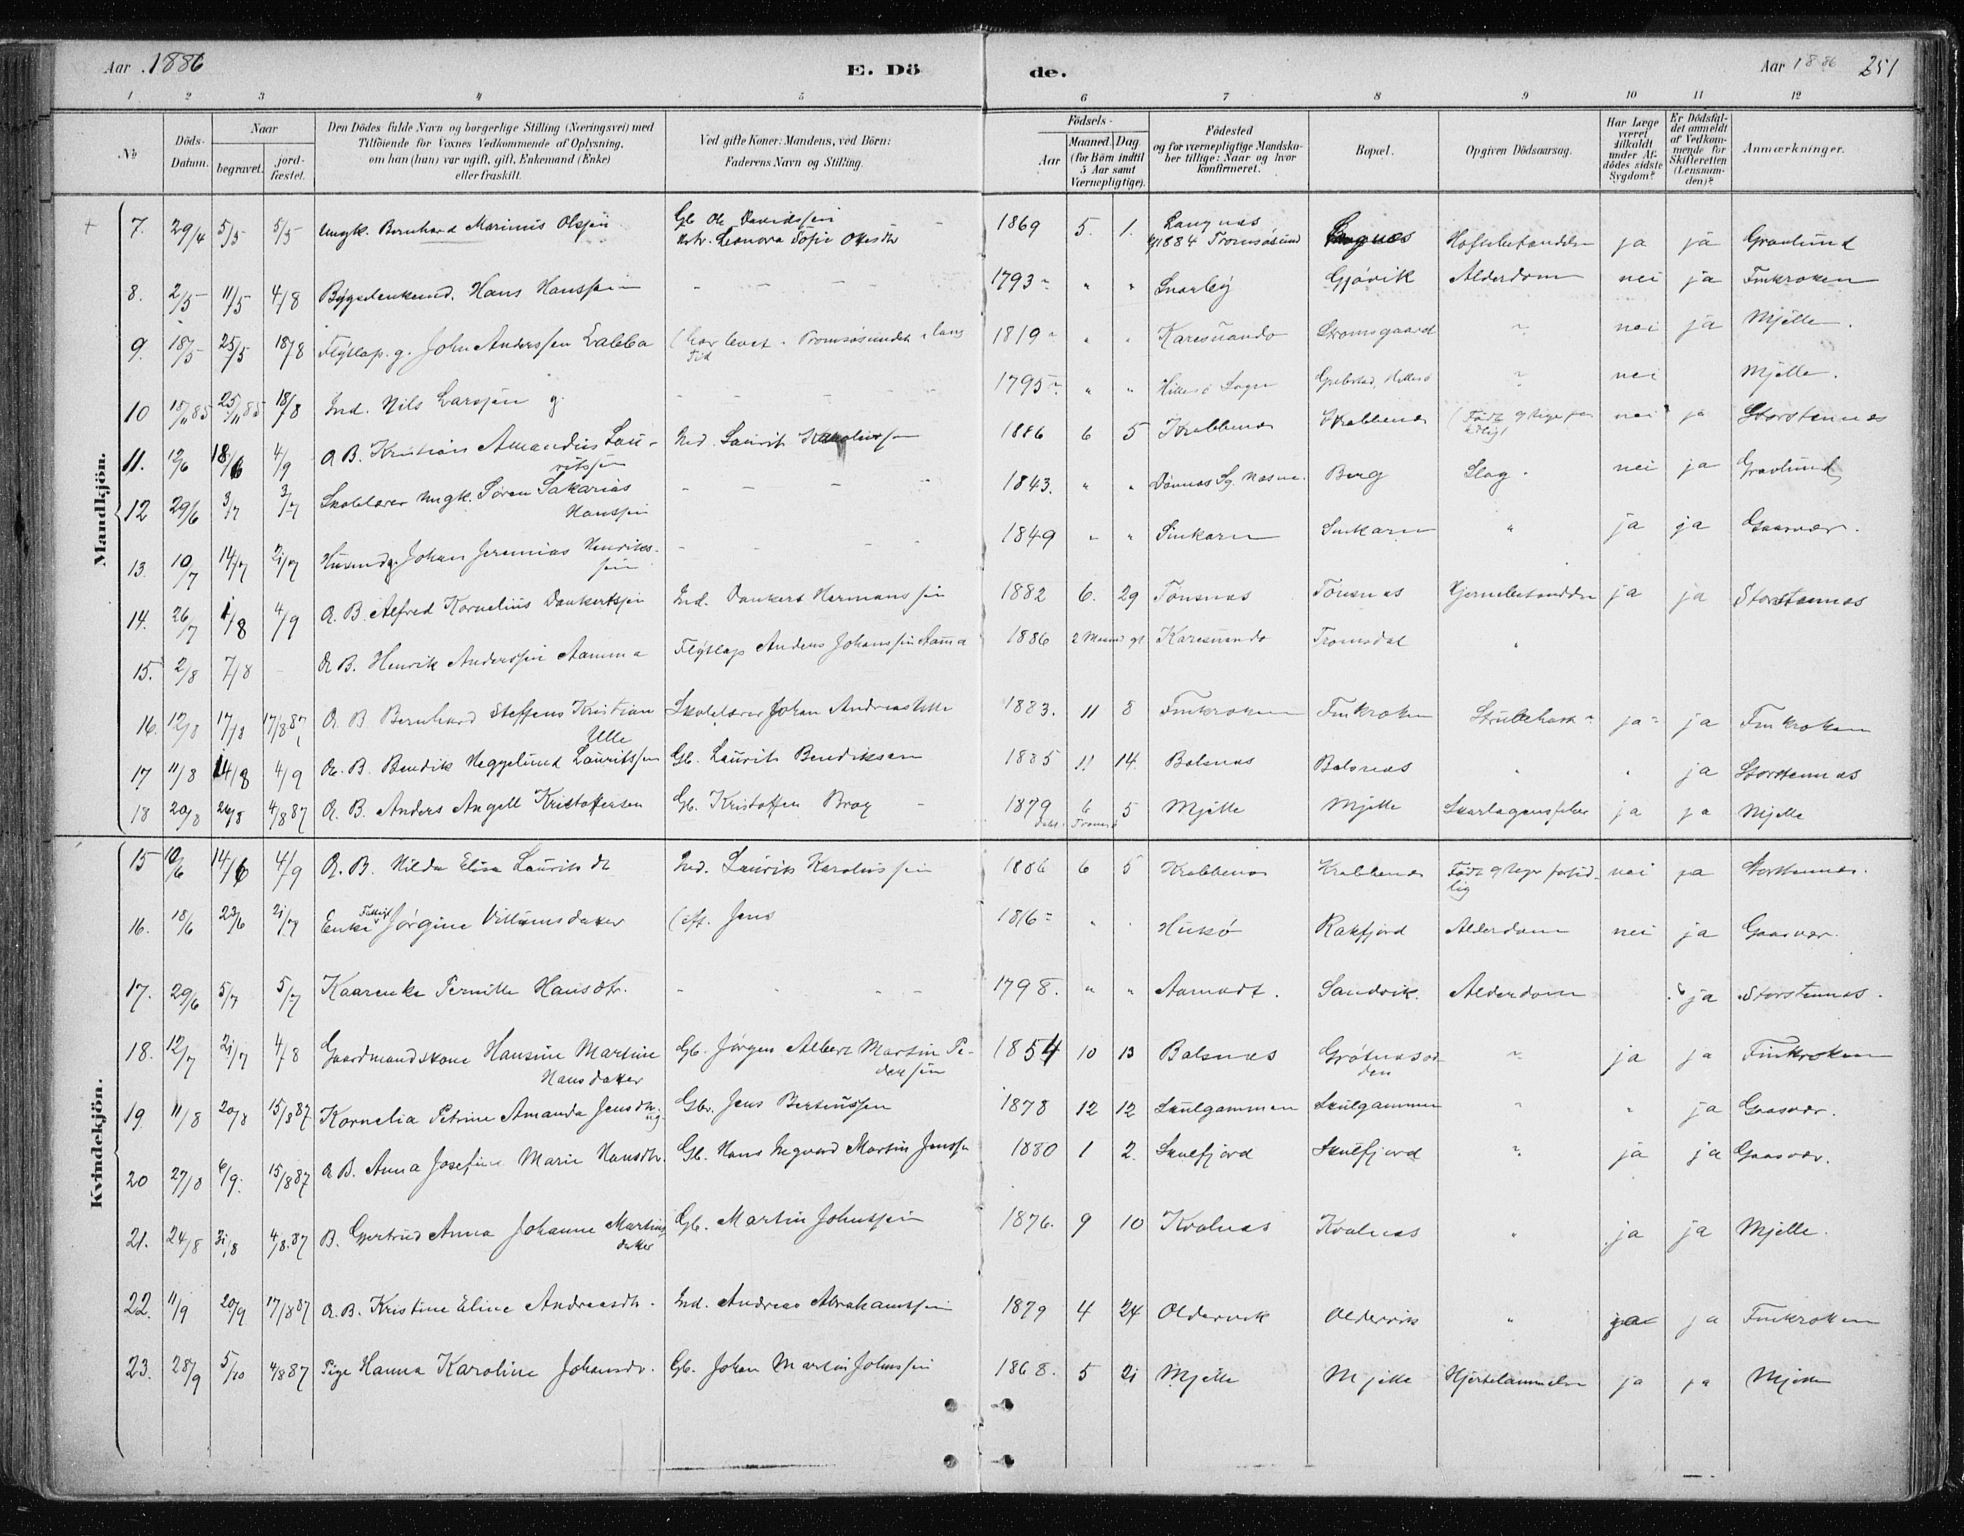 Aar 1886 E. Dö de. Aar 1886 251
1 2 3 4 5 6 7 8 9 10 11 12
No Döds-Datum. Naar begravet. jordfæstet. Den Dödes fulde Navn og borgerlige Stilling (Næringsvei) med Tilföiende for Voxnes Vedkommende af Oplysning, om han (hun) var ugift, gift, Enkemand (Enke) eller fraskilt. Ved gifte Koner: Mandens, ved Börn: Faderens Navn og Stilling. Födsels- Aar Maaned. Dag (for Börn indtil 5 Aar samt Værnepligtige). Födested og for værnepligtige Mandskaber tillige: Naar og hvor konfirmeret. Bopæl. Opgiven Dödsaarsag. Har Læge været tilkaldt under Afdödes sidste Sygdom? Er Dödsfaldet anmeldt af Vedkommende for Skifteretten (Lensmanden)? Anmærkninger.
Mandkjön.
7. 29/4 5/5 5/5 Ungk. Bernhard Marinius Olssen Gb. Ole Davidssen 1869 5. 1. Langnes ja ja Gravlund
Leonora Sofie 1884 Tromsøsund
8. 2/5 11/5 4/8 Hans Hanssen - - - - 1793 " " Snarby Gjövik Alderdom nei ja Finkroken
9. 18/5 25/5 18/8 Flytlap. g. John Anderssen Labba (har levet i Tromsøsundet i lang Tid 1819 " " Karesuando Stromsgaard " nei ja Mjelle.
10 18/11 85 25/11 85 18/8 Ind. Nils Larssen g. - - - 1795 " " Hillesö Sogn Hillesö " nei Mjelle.
11. 12/6 18/6 4/9 A B. Kristian Amandus Lauritssen Ind. Laurits Karolius sen 1886 6 5 Krabbenes Krabbenes (Født nei ja Storstennes
12 29/6 3/7 3/7 Skolelærer Ungk. Søren Sakarias Hanssen - - - - 1843. " " Berg Slag. nei ja Gravlund
13. 10/7 14/7 21/7 Johan Jeremias Henrikssen - - - - 1849 " " Sinkarn Sinkarn " ja ja Gaasvær.
14. 26/7 1/8 4/9 A. B. Alfred Kornelius Dankertssen Ind. Dankert Hermanssen 1882 6. 29 Tönsnes Tönsnes Hjernebetændelse ja ja Storstennes
15. 2/8 7/8 - A B. Henrik Anderssen Aamma Flytlap Anders Johanssen Aama 1886 2 Karesuando Tromsdal "
16. 12/8 17/8 17/8 87 A. B Bernhard Steffens Kristian Ulle Skolelærer Johan Andreas Ulle 1883. 11 8 Finkroken Finkroken Strubehoste ja ja Finkroken
17 11/8 14/8 4/9 A. B. Bendik Heggelund Lauritssen Gb. Laurits Bendriksen 1885 11 14. Balsnes Balsnes " " ja Storstennes
18 20/8 26/8 4/8 87 A. B. Anders Angell Kristoffersen Gb. Kristoffer Brox 1879 6 5 Mjelle Mjelle Skarlagensfeber ja ja Mjelle
Kvindekjön.
15 10/6 14/6 4/9 A. B. Hilda Elisa Laurits dt Ind. Laurits Karolius sen 1886 6 5 Krabbenes Krabbenes Født nei ja Storstennes.
16. 18/6 23/6 21/7 Enke Fattigl Jørgine Villumsdatter (eft. Jens 1816 " " Husø Rakfjord Alderdom nei ja Gaasvær.
17. 29/6 5/7 5/7 Kaarenke Pernille Hansdtr. - - - - 1798. " " Sandvik. Alderdom ja Storstennes.
18. 12/7 21/7 4/8 Gaardmandskone Hansine Martine Hansdatter Gb. Jørgen Albert Martin Pedersen 1854 10 13 Balsnes Grötnesodden " ja ja Finkroken
19. 11/8 20/8 15/8 87 Kornelia Petrine Amanda Jensdtr. ug. Gbr. Jens Bertinussen 1878 12 12 Skulgammen Skulgammen " " ja Gaasvær.
20 27/8 6/9. 15/8 87 A B. Anna Josefine Marie Hansdtr. Gb. Hans Ingvard Martin Jenssen 1880 1 2. Skulfjord Skulfjord " ja ja Gaasvær.
21. 24/8 31/8 4/8.87 B. Gjertrud Anna Johanne Martinsdatter Gb. Martin Johnssen 1876. 9 10 Kvalnes Kvalnes " ja ja Mjelle.
22. 11/9 20/9 17/8 87 A. B. Kristine Eline Andreasdtr. Ind. Andreas Abrahamssen 1879 4 24 Oldervik Oldervik " ja ja Finkroken
23. 28/9 5/10 4/8 87 Pige Hanna Karoline Johansdtr. Gb. Johan Martin Johnssen 1868. 5 21 Mjelle Mjelle Hjertelammelse ja ja Mjelle